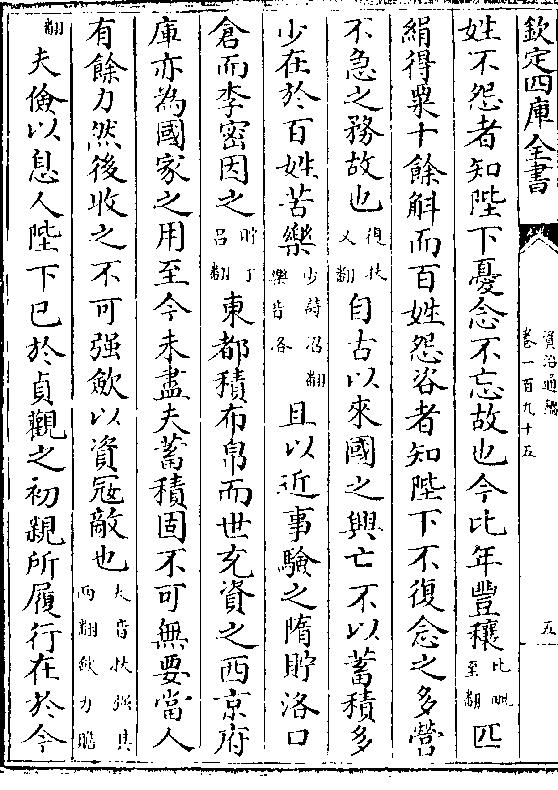 欽定四庫全書
資治通鑑
卷一百九十五
五
姓不怨者知陛下憂念不忘故也今比年豐穰比毗至翻匹
絹得粟十餘斛而百姓怨咨者知陛下不復念之多營
不急之務故也復扶又翻自古以來國之興亡不以蓄積多
少在於百姓苦樂少詩沼翻樂音洛且以近事驗之隋貯洛口
倉而李密因之貯丁呂翻東都積布帛而世充資之西京府
庫亦為國家之用至今未盡夫蓄積固不可無要當人
有餘力然後收之不可强斂以資寇敵也夫音扶强其兩翻斂力贍
翻夫儉以息人陛下已於貞觀之初親所履行在於今